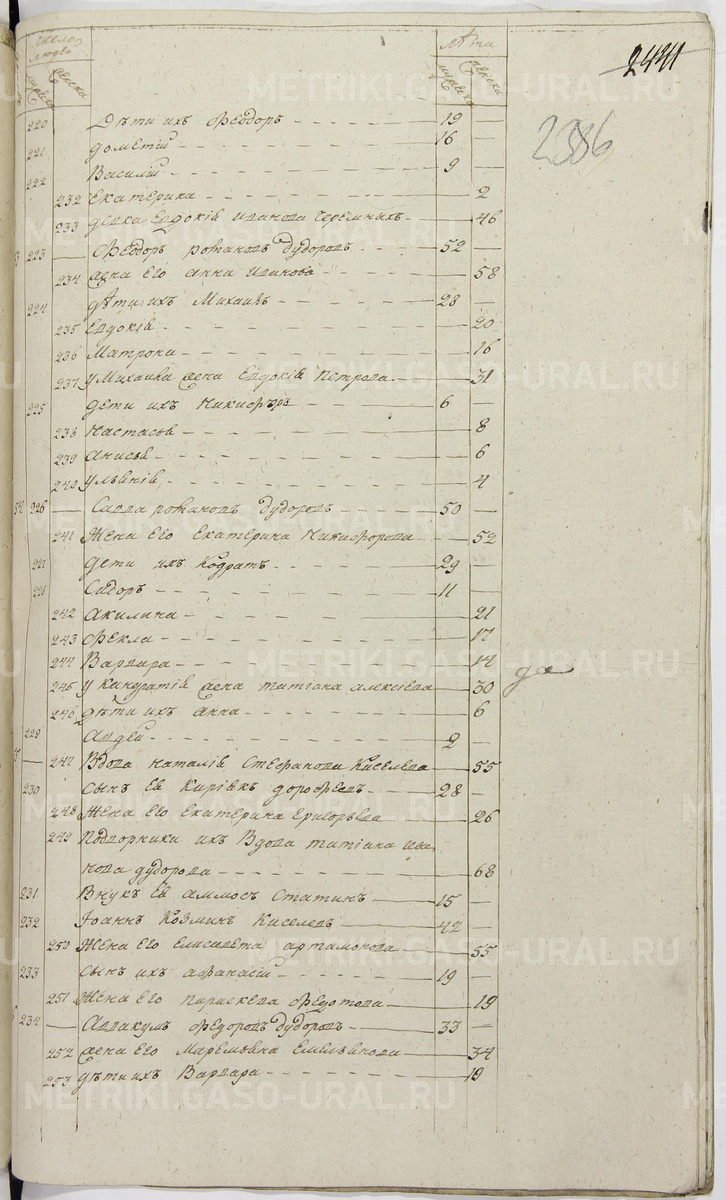 число людей
лѣта
мужеска
женска
мужеска
женска
2441
2386
220 Дѣти ихъ Ѳеодоръ 19 —
221 Дометій 16 —
222 Василій 9 —
232 Екатерина — 2
233 девка Евдокія Иванова Черемныхъ — 46
223 — Ѳеодоръ романовъ дудоровъ 52 —
234 жена Его Анна Иванова — 58
224 дѣти ихъ Михаилъ 28 —
235 Евдокія — 20
236 Матрона — 16
237 у Михаила жена Евдокія Петрова — 31
225 дети ихъ Никифоръ 6 —
238 Настасья — 8
239 Анисья — 6
240 Ульянія — 4
226 — Савва романовъ дудоровъ 50 —
241 Жена Его Екатерина Никифорова — 52
227 дети ихъ Кодратъ 29 —
228 Сидоръ 11 —
242 Акилина — 21
243 Ѳекла — 17
244 Варвара — 14
245 у Кандратія жена татіана алексіева — 30
246 дѣти ихъ Анна — 6
229 Авдей 2 —
247 Вдова наталія Стефанова Киселева — 55
230 сынъ Ея Кириякъ дорофеевъ 28 —
248 Жена Его Екатерина Григорьева — 26
249 Подворники ихъ Вдова татіана Ива
нова дудорова — 68
231 Внукъ Ея Аммосъ Статинъ 15 —
232 Іоаннъ Козминъ Киселевъ 42 —
250 Жена Его Елисавета артамонова — 55
233 сынъ ихъ афанасій 19 —
251 Жена Его параскева Ѳедотова — 19
234 — Аввакумъ Ѳедоровъ дудоровъ 33 —
252 жена Его Маремьяна Емельянова — 34
253 дѣти ихъ Варвара — 19
METRIKI.GASO-URAL.RU